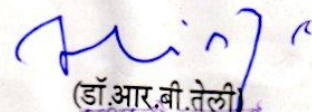 (डॉ.आर.बी.तेली)